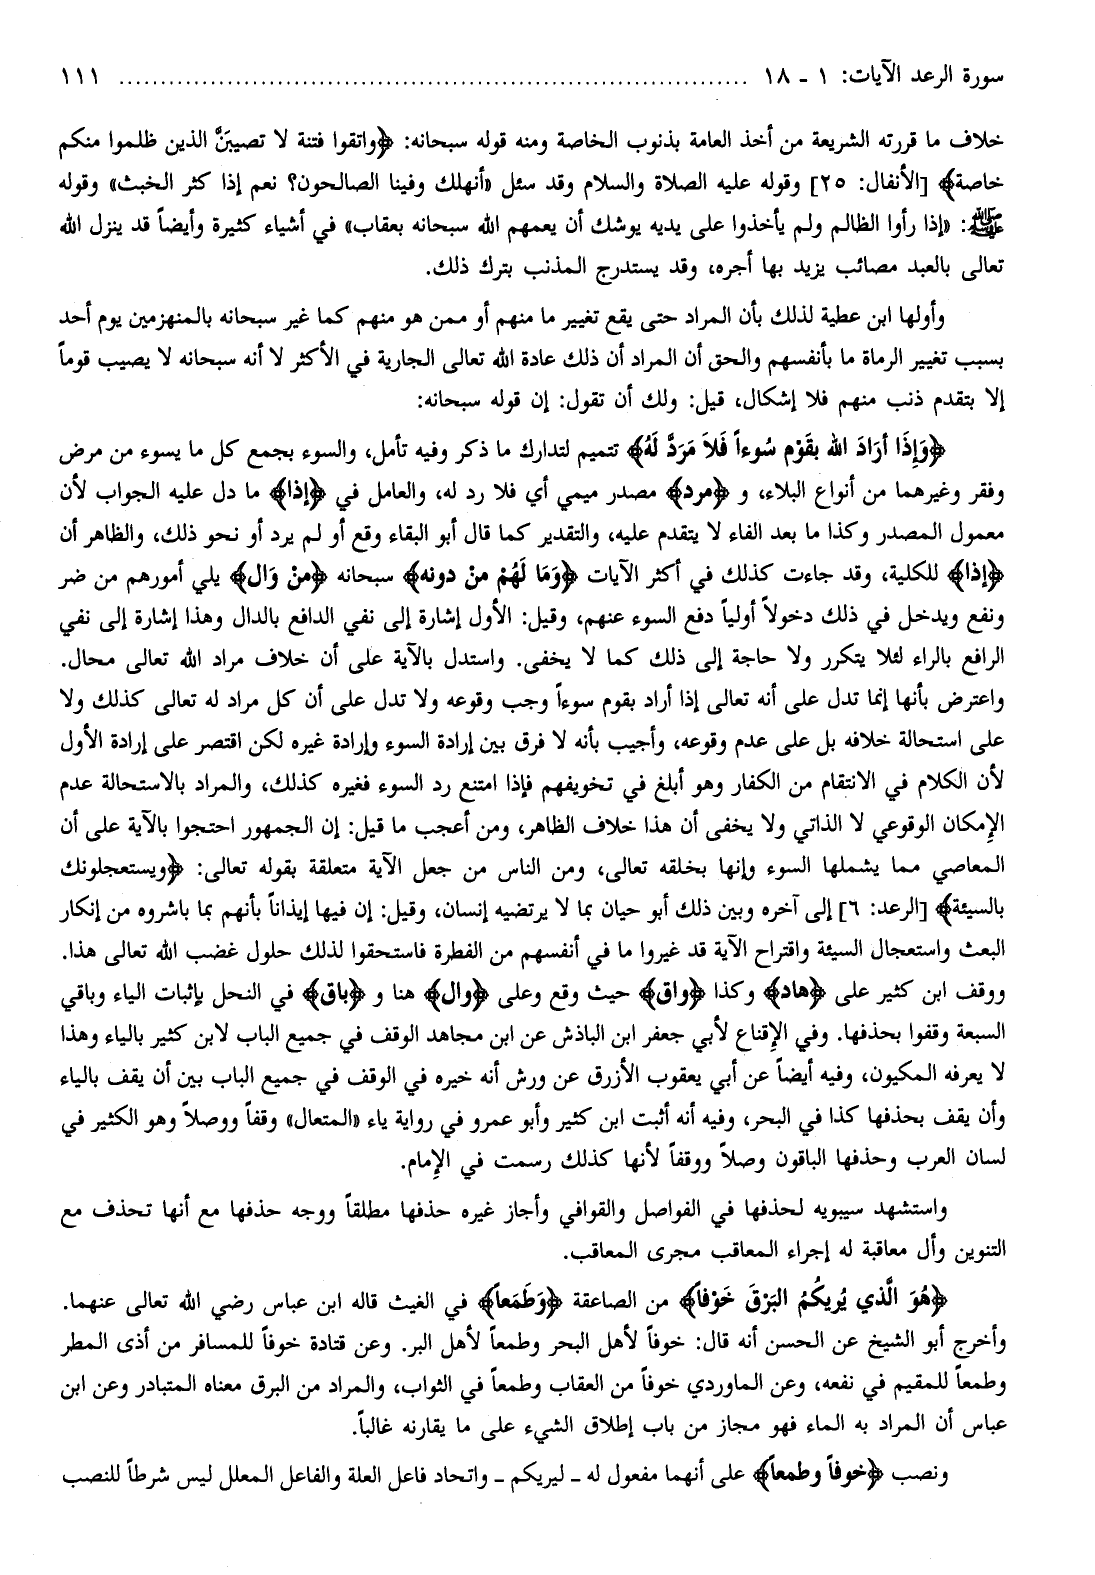 سورة الرعد الآيات: ١ - ١٨ ........................................................................ ١١١
خلاف ما قررته الشريعة من أخذ العامة بذنوب الخاصة ومنه قوله سبحانه: ﴿واتقوا فتنة لا تصيبَنَّ الذين ظلموا منكم
خاصة﴾ [الأنفال: ٢٥] وقوله عليه الصلاة والسلام وقد سئل «أنهلك وفينا الصالحون؟ نعم إذا كثر الخبث» وقوله
ﷺ: «إذا رأوا الظالم ولم يأخذوا على يديه يوشك أن يعمهم الله سبحانه بعقاب» في أشياء كثيرة وأيضاً قد ينزل الله
تعالى بالعبد مصائب يزيد بها أجره، وقد يستدرج المذنب بترك ذلك.
وأولها ابن عطية لذلك بأن المراد حتى يقع تغيير ما منهم أو ممن هو منهم كما غير سبحانه بالمنهزمين يوم أحد
بسبب تغيير الرماة ما بأنفسهم والحق أن المراد أن ذلك عادة الله تعالى الجارية في الأكثر لا أنه سبحانه لا يصيب قوماً
إلا بتقدم ذنب منهم فلا إشكال، قيل: ولك أن تقول: إن قوله سبحانه:
﴿وَإِذَا أرَادَ الله بقَوْم سُوءاً فَلاَ مَرَدَّ لَهُ﴾ تتميم لتدارك ما ذكر وفيه تأمل، والسوء بجمع كل ما يسوء من مرض
وفقر وغيرهما من أنواع البلاء، و ﴿مرد﴾ مصدر ميمي أي فلا رد له، والعامل في ﴿إذا﴾ ما دل عليه الجواب لأن
معمول المصدر وكذا ما بعد الفاء لا يتقدم عليه، والتقدير كما قال أبو البقاء وقع أو لم يرد أو نحو ذلك، والظاهر أن
﴿إذا﴾ للكلية، وقد جاءت كذلك في أكثر الآيات ﴿وَمَا لَهُمْ منْ دونه﴾ سبحانه ﴿منْ وَال﴾ يلي أمورهم من ضر
ونفع ويدخل في ذلك دخولاً أولياً دفع السوء عنهم، وقيل: الأول إشارة إلى نفي الدافع بالدال وهذا إشارة إلى نفي
الرافع بالراء لئلا يتكرر ولا حاجة إلى ذلك كما لا يخفى. واستدل بالآية على أن خلاف مراد الله تعالى محال.
واعترض بأنها إنما تدل على أنه تعالى إذا أراد بقوم سوءاً وجب وقوعه ولا تدل على أن كل مراد له تعالى كذلك ولا
على استحالة خلافه بل على عدم وقوعه، وأجيب بأنه لا فرق بين إرادة السوء وإرادة غيره لكن اقتصر على إرادة الأول
لأن الكلام في الانتقام من الكفار وهو أبلغ في تخويفهم فإذا امتنع رد السوء فغيره كذلك، والمراد بالاستحالة عدم
الإمكان الوقوعي لا الذاتي ولا يخفى أن هذا خلاف الظاهر، ومن أعجب ما قيل: إن الجمهور احتجوا بالآية على أن
المعاصي مما يشملها السوء وإنها بخلقه تعالى، ومن الناس من جعل الآية متعلقة بقوله تعالى: ﴿ويستعجلونك
بالسيئة﴾ [الرعد: ٦] إلى آخره وبين ذلك أبو حيان بما لا يرتضيه إنسان، وقيل: إن فيها إيذاناً بأنهم بما باشروه من إنكار
البعث واستعجال السيئة واقتراح الآية قد غيروا ما في أنفسهم من الفطرة فاستحقوا لذلك حلول غضب الله تعالى هذا.
ووقف ابن كثير على ﴿هاد﴾ وكذا ﴿واق﴾ حيث وقع وعلى ﴿وال﴾ هنا و ﴿باق﴾ في النحل بإثبات الياء وباقي
السبعة وقفوا بحذفها. وفي الإقناع لأبي جعفر ابن الباذش عن ابن مجاهد الوقف في جميع الباب لابن كثير بالياء وهذا
لا يعرفه المكيون، وفيه أيضاً عن أبي يعقوب الأزرق عن ورش أنه خيره في الوقف في جميع الباب بين أن يقف بالياء
وأن يقف بحذفها كذا في البحر، وفيه أنه أثبت ابن كثير وأبو عمرو في رواية ياء «المتعال» وقفاً ووصلاً وهو الكثير في
لسان العرب وحذفها الباقون وصلاً ووقفاً لأنها كذلك رسمت في الإمام.
واستشهد سيبويه لحذفها في الفواصل والقوافي وأجاز غيره حذفها مطلقاً ووجه حذفها مع أنها تحذف مع
التنوين وأل معاقبة له إجراء المعاقب مجرى المعاقب.
﴿هُوَ الَّذي يُريكُمُ البَرْقَ خَوْفاً﴾ من الصاعقة ﴿وَطَمَعاً﴾ في الغيث قاله ابن عباس رضي الله تعالى عنهما.
وأخرج أبو الشيخ عن الحسن أنه قال: خوفاً لأهل البحر وطمعاً لأهل البر. وعن قتادة خوفاً للمسافر من أذى المطر
وطمعاً للمقيم في نفعه، وعن الماوردي خوفاً من العقاب وطمعاً في الثواب، والمراد من البرق معناه المتبادر وعن ابن
عباس أن المراد به الماء فهو مجاز من باب إطلاق الشيء على ما يقارنه غالباً.
ونصب ﴿خوفاً وطمعاً﴾ على أنهما مفعول له ـ ليريكم ـ واتحاد فاعل العلة والفاعل المعلل ليس شرطاً للنصب